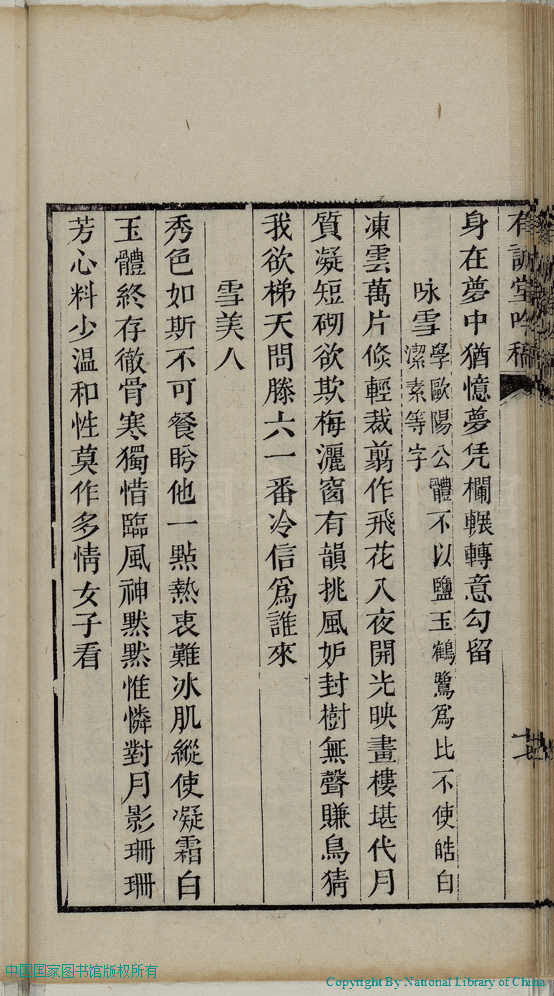 有堂吟稿
身在夢中猶憶夢凭欄輾轉意勾留
咏雪
學歐陽公體不以鹽玉鶴鷺爲比不使皓白
潔素等字
凍雲萬片倐輕裁翦作飛花入夜開光映畫樓堪代月
質凝短砌欲欺梅灑窗有韻挑風妒封樹無聲賺鳥猜
我欲梯天問滕六一番冷信爲誰來
雪美人
秀色如斯不可餐盻他一點熱衷難冰肌縱使凝霜白
玉體終存徹骨寒獨惜臨風神黙黙惟憐對月影珊珊
芳心料少温和性莫作多情女子看
中国国家图书馆版权所有
Copyright By National Library of China